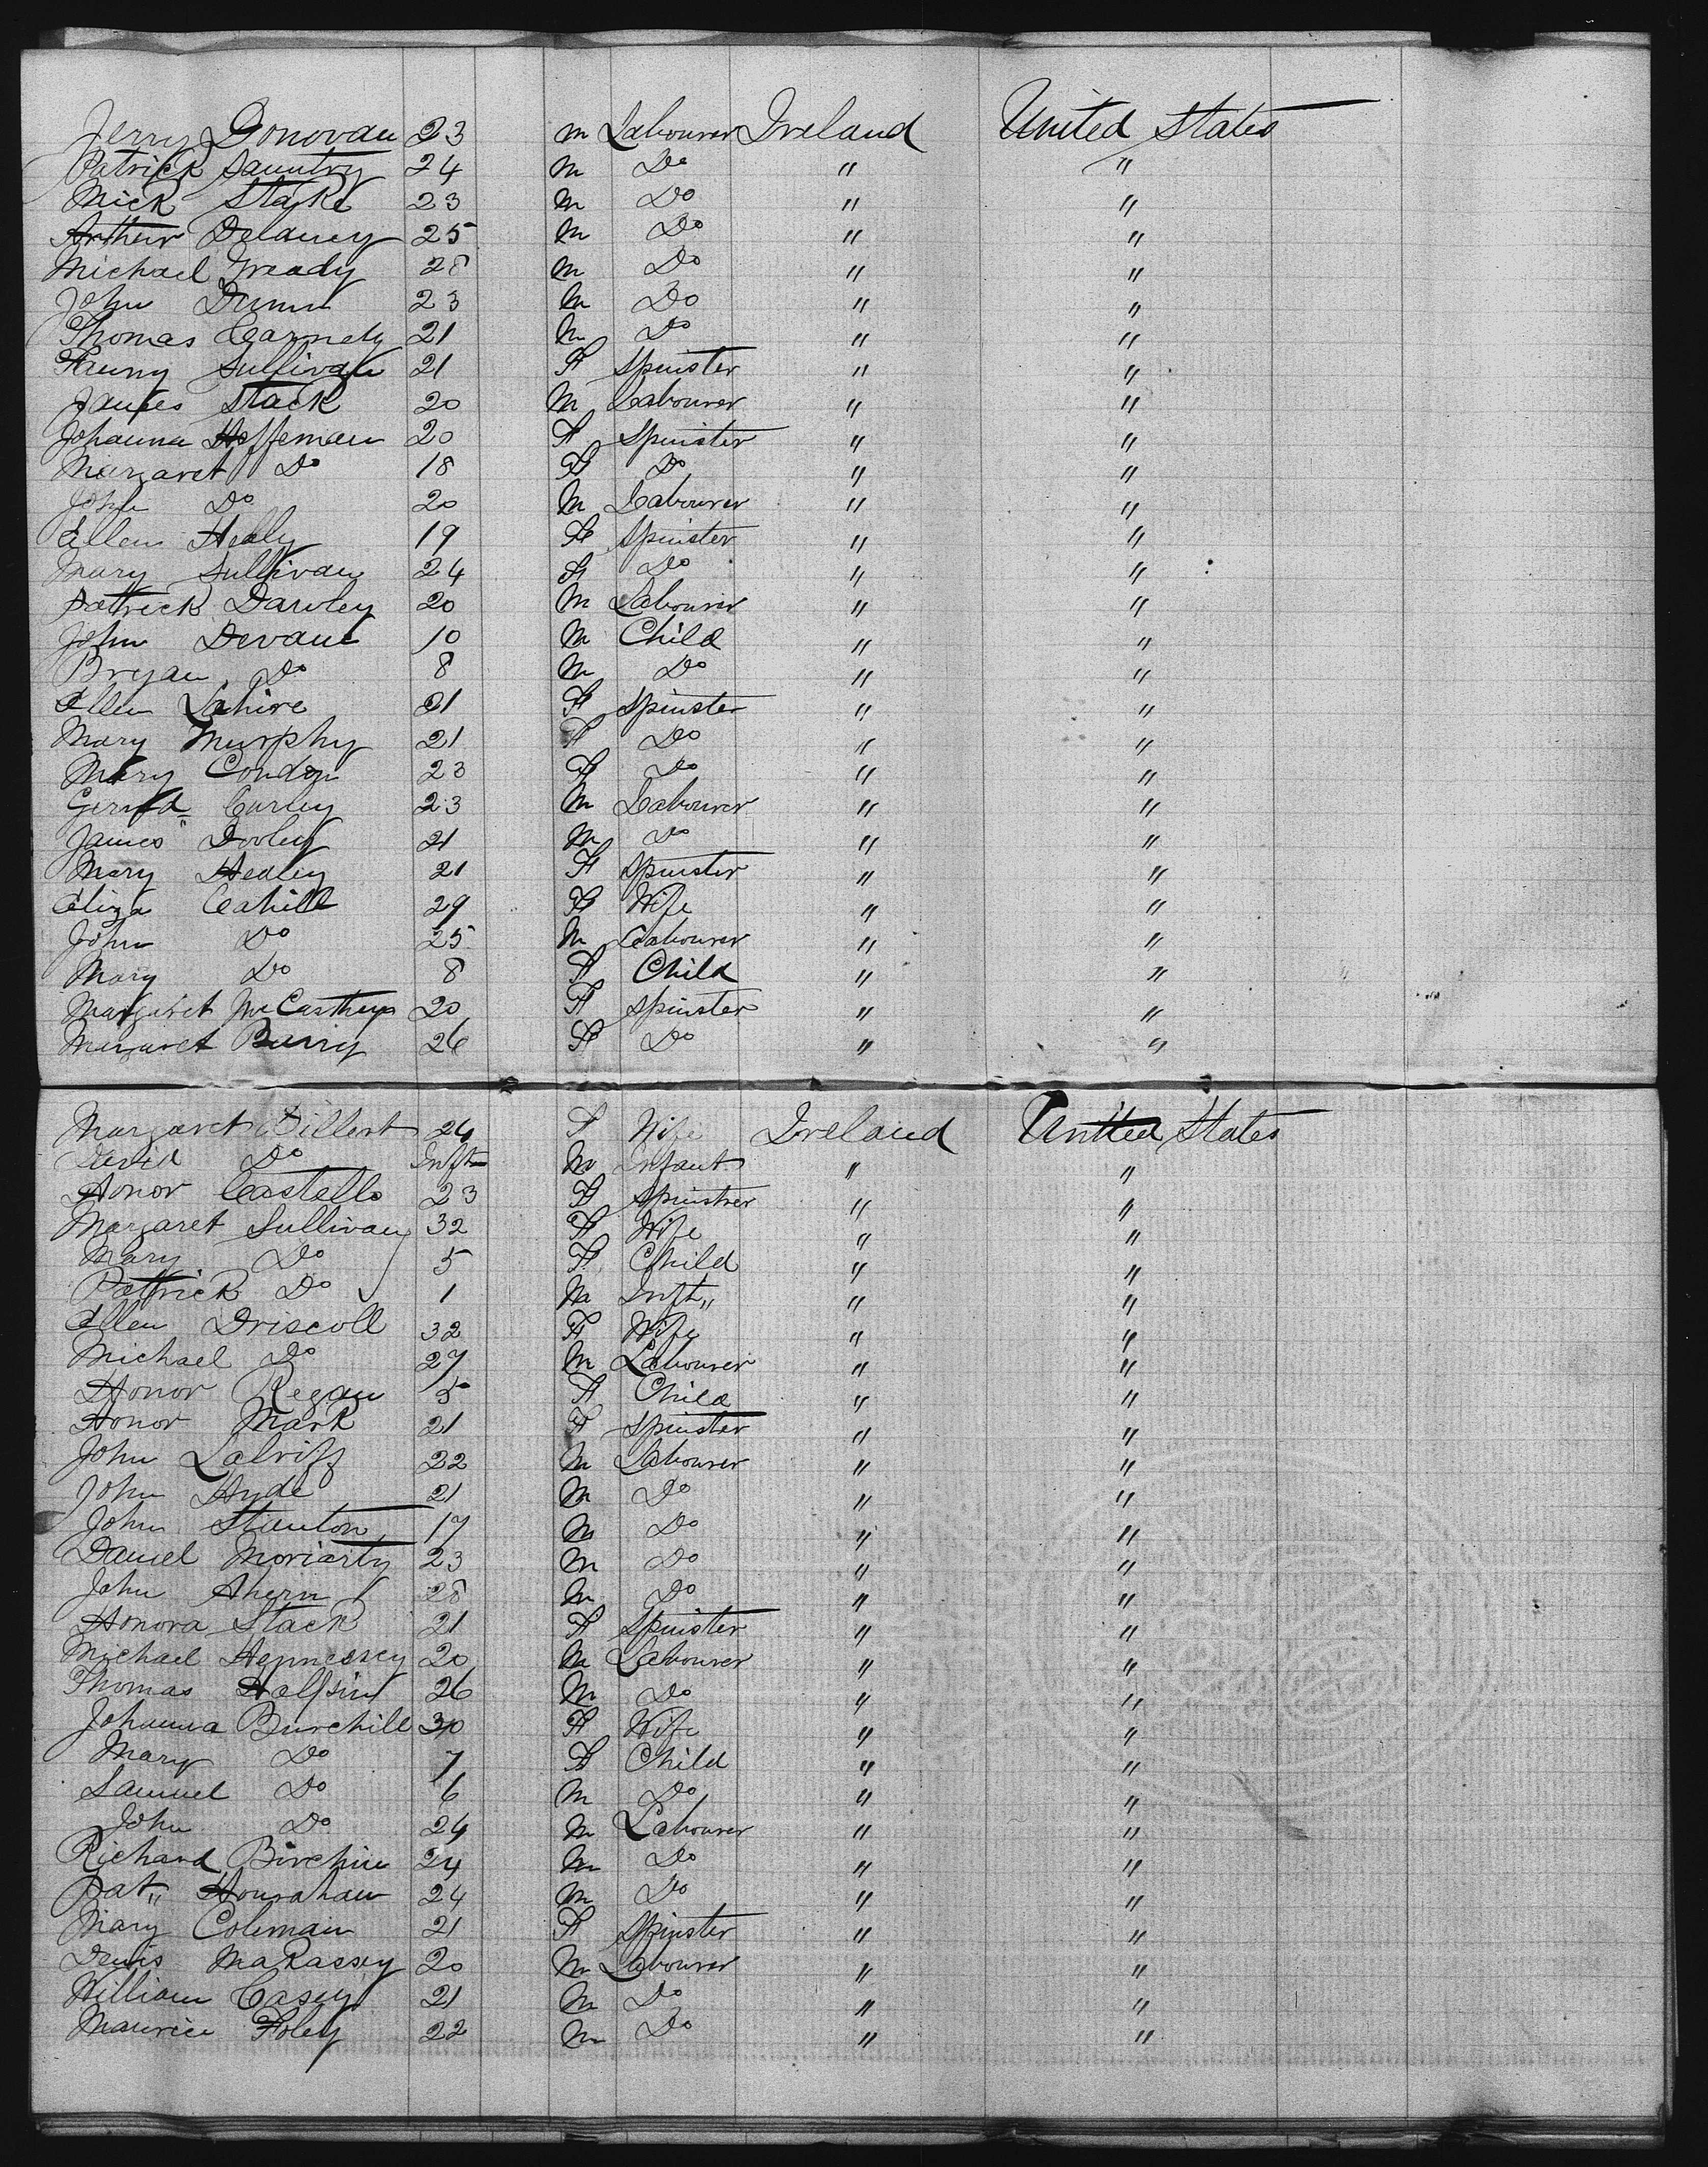 Jerry Donovan 23 m Labourer Ireland United States
Patrick Sauntry 24 m Do " "
Mick Stake 23 m Do " "
Arthur Delaney 25 m Do " "
Michael Gready 28 m Do " "
John Dunn 23 m Do " "
Thomas Carmely 21 m Do " "
Fanny Sullivan 21 F Spinster " "
James Stack 20 m Labourer " "
Johanna Heffernan 20 F Spinster " "
Margaret Do 18 F Do " "
John Do 20 m Labourer " "
Ellen Healy 19 F Spinster " "
Mary Sullivan 24 F Do " "
Patrick Dawley 20 m Labourer " "
John Devane 10 m Child " "
Bryan Do 8 m Do " "
Ellen Lahire 21 F Spinster " "
Mary Murphy 21 F Do " "
Mary Condon 23 F Do " "
Gerrd Curley 23 m Labourer " "
James Dooley 21 m Do " "
Mary Healey 21 F Spinster " "
Eliza Cahill 29 F Wife " "
John Do 25 m Labourer " "
Mary Do 8 F Child " "
Margaret McCarthy 20 F Spinster " "
Margaret Barry 26 F Do " "
Margaret 24 F Wife Ireland United States
David Do Inft m Infant " "
Honor Castello 23 F Spinster " "
Margaret Sullivan 32 F Wife " "
Mary Do 5 F Child " "
Patrick Do 1 m Inft " "
Ellen Driscoll 32 F Wife " "
Michael Do 27 m Labourer " "
Honor Regan 5 F Child " "
Honor Mark 21 F Spinster " "
John 22 m Labourer " "
John Hyde 21 m Do " "
John Stanton 17 m Do " "
Daniel Moriarty 23 m Do " "
John Ahern 28 m Do " "
Honora Stack 21 F Spinster " "
Michael Hennessey 20 m Labourer " "
Thomas Halpin 26 m Do " "
Johanna Burchill 30 F Wife " "
Mary Do 7 F Child " "
Samuel Do 6 m Do " "
John Do 24 m Labourer " "
Richard Birchin 24 m Do " "
Pat" Hourahan 24 m Do " "
Mary Coleman 21 F Spinster " "
Denis MaRassey 20 m Labourer " "
William Casey 21 m Do " "
Maurice Foley 22 m Do " "